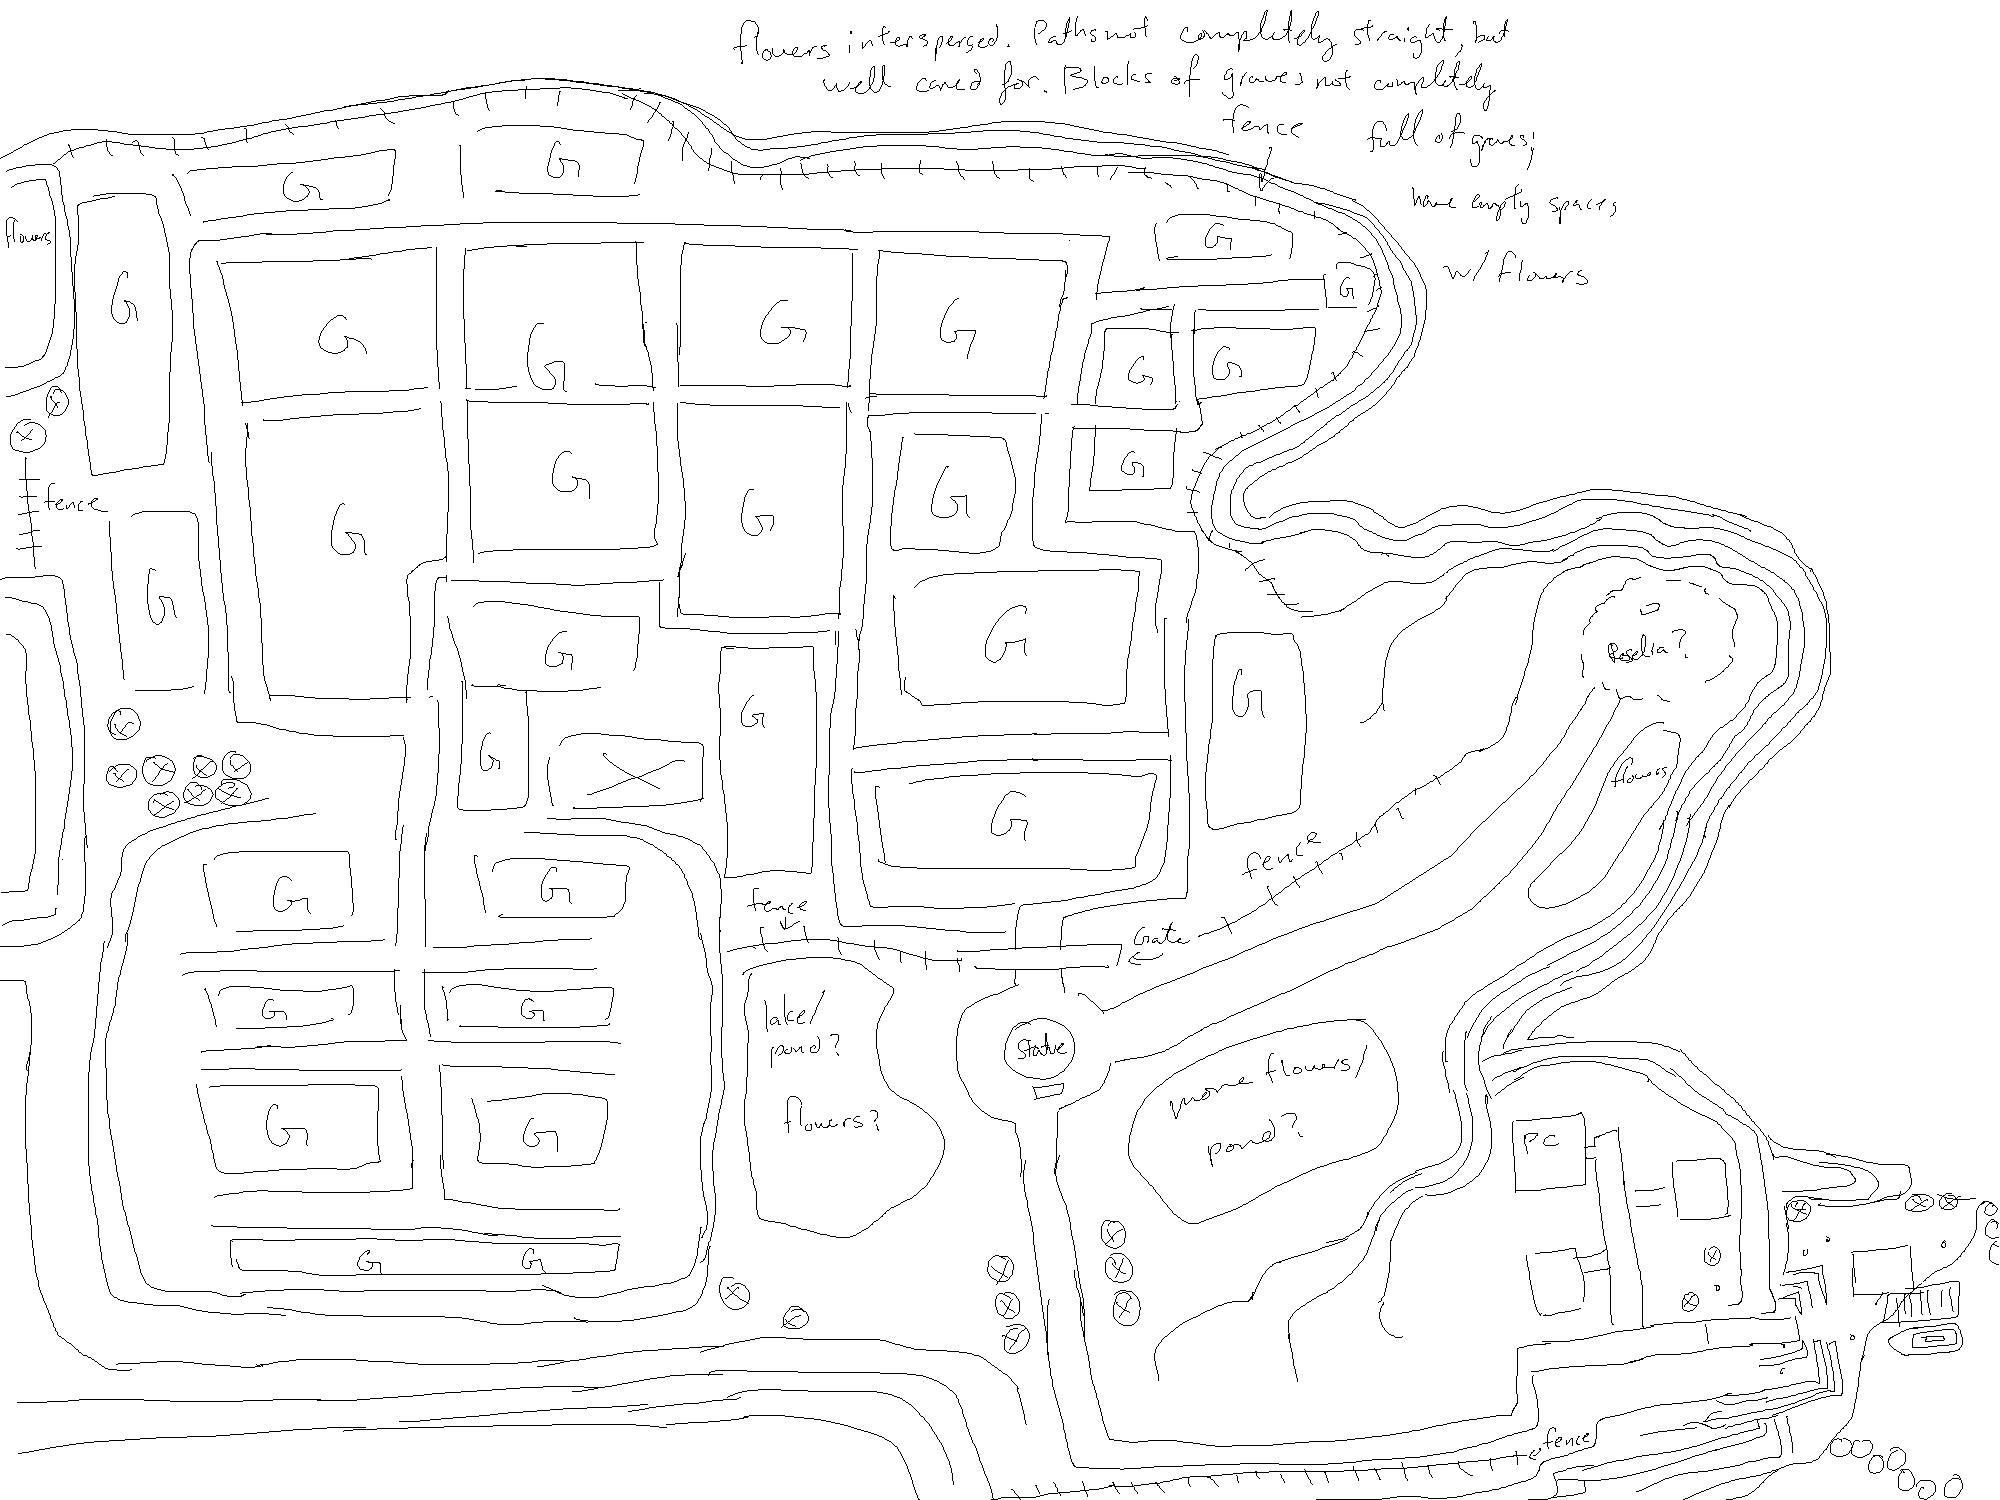 flowers interspersed. Paths not completely straight, but
well cared for. Blocks of graves not completely
full of graves;
have empty spaces
w/ flowers
fence
G
G
flowers
G
G
G
G
G
G
G
G
G
G
fence
G
G
G
G
G
G
G
G
G
Roselia?
G
G
G
X
flowers
G
fence
G
G
fence
Gate
G
G
lake/
pond?
flowers?
Statue
more flowers/
pond?
G
G
PC
G
G
fence